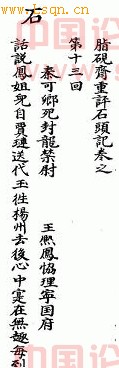 脂硯齋重評石頭記卷之
第十三回
秦可卿死封龍禁尉 王熙鳳協理寧国府
話說鳳姐兒自賈璉送代玉徃楊州去後心中寔在無趣每到
石
中国论